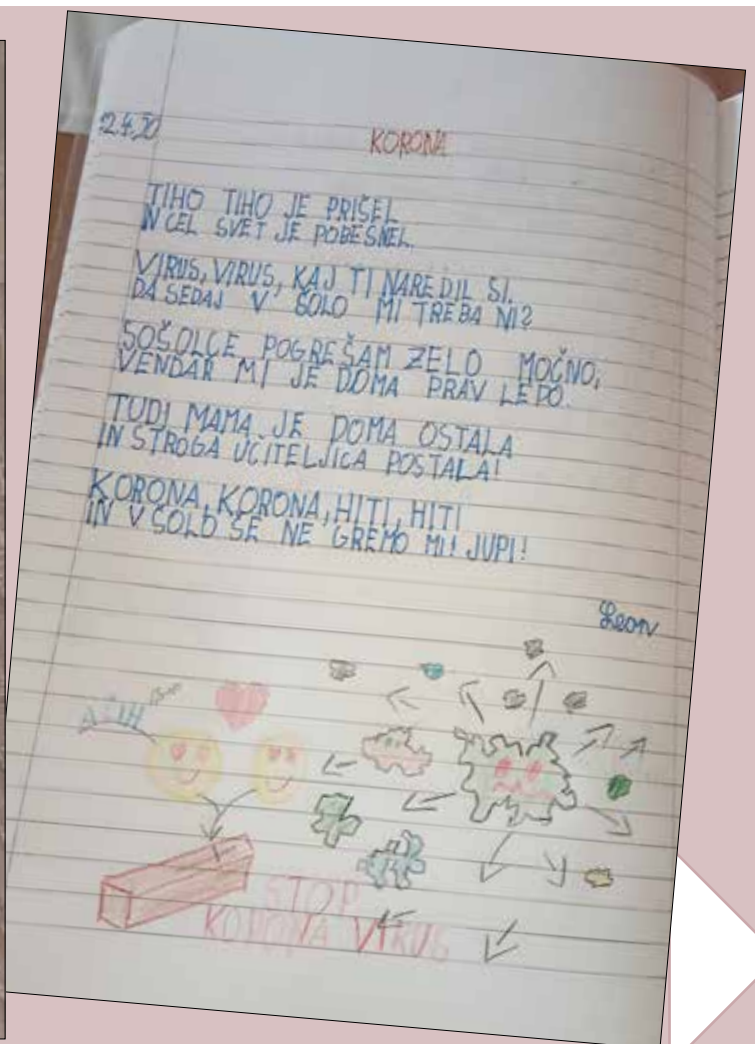 2.4.20
KORONA
TIHO TIHO JE PRIŠEL
IN CEL SVET JE POBESNEL.
VIRUS, VIRUS, KAJ TI NAREDIL SI,
DA SEDAJ V ŠOLO MI TREBA NI?
SOŠOLCE POGREŠAM ZELO MOČNO,
VENDAR MI JE DOMA PRAV LEPO.
TUDI MAMA JE DOMA OSTALA
IN STROGA UČITELJICA POSTALA!
KORONA, KORONA, HITI, HITI
IN V ŠOLO ŠE NE GREMO MI! JUPI!
Leon
AČIH
STOP
KORONA VIRUS